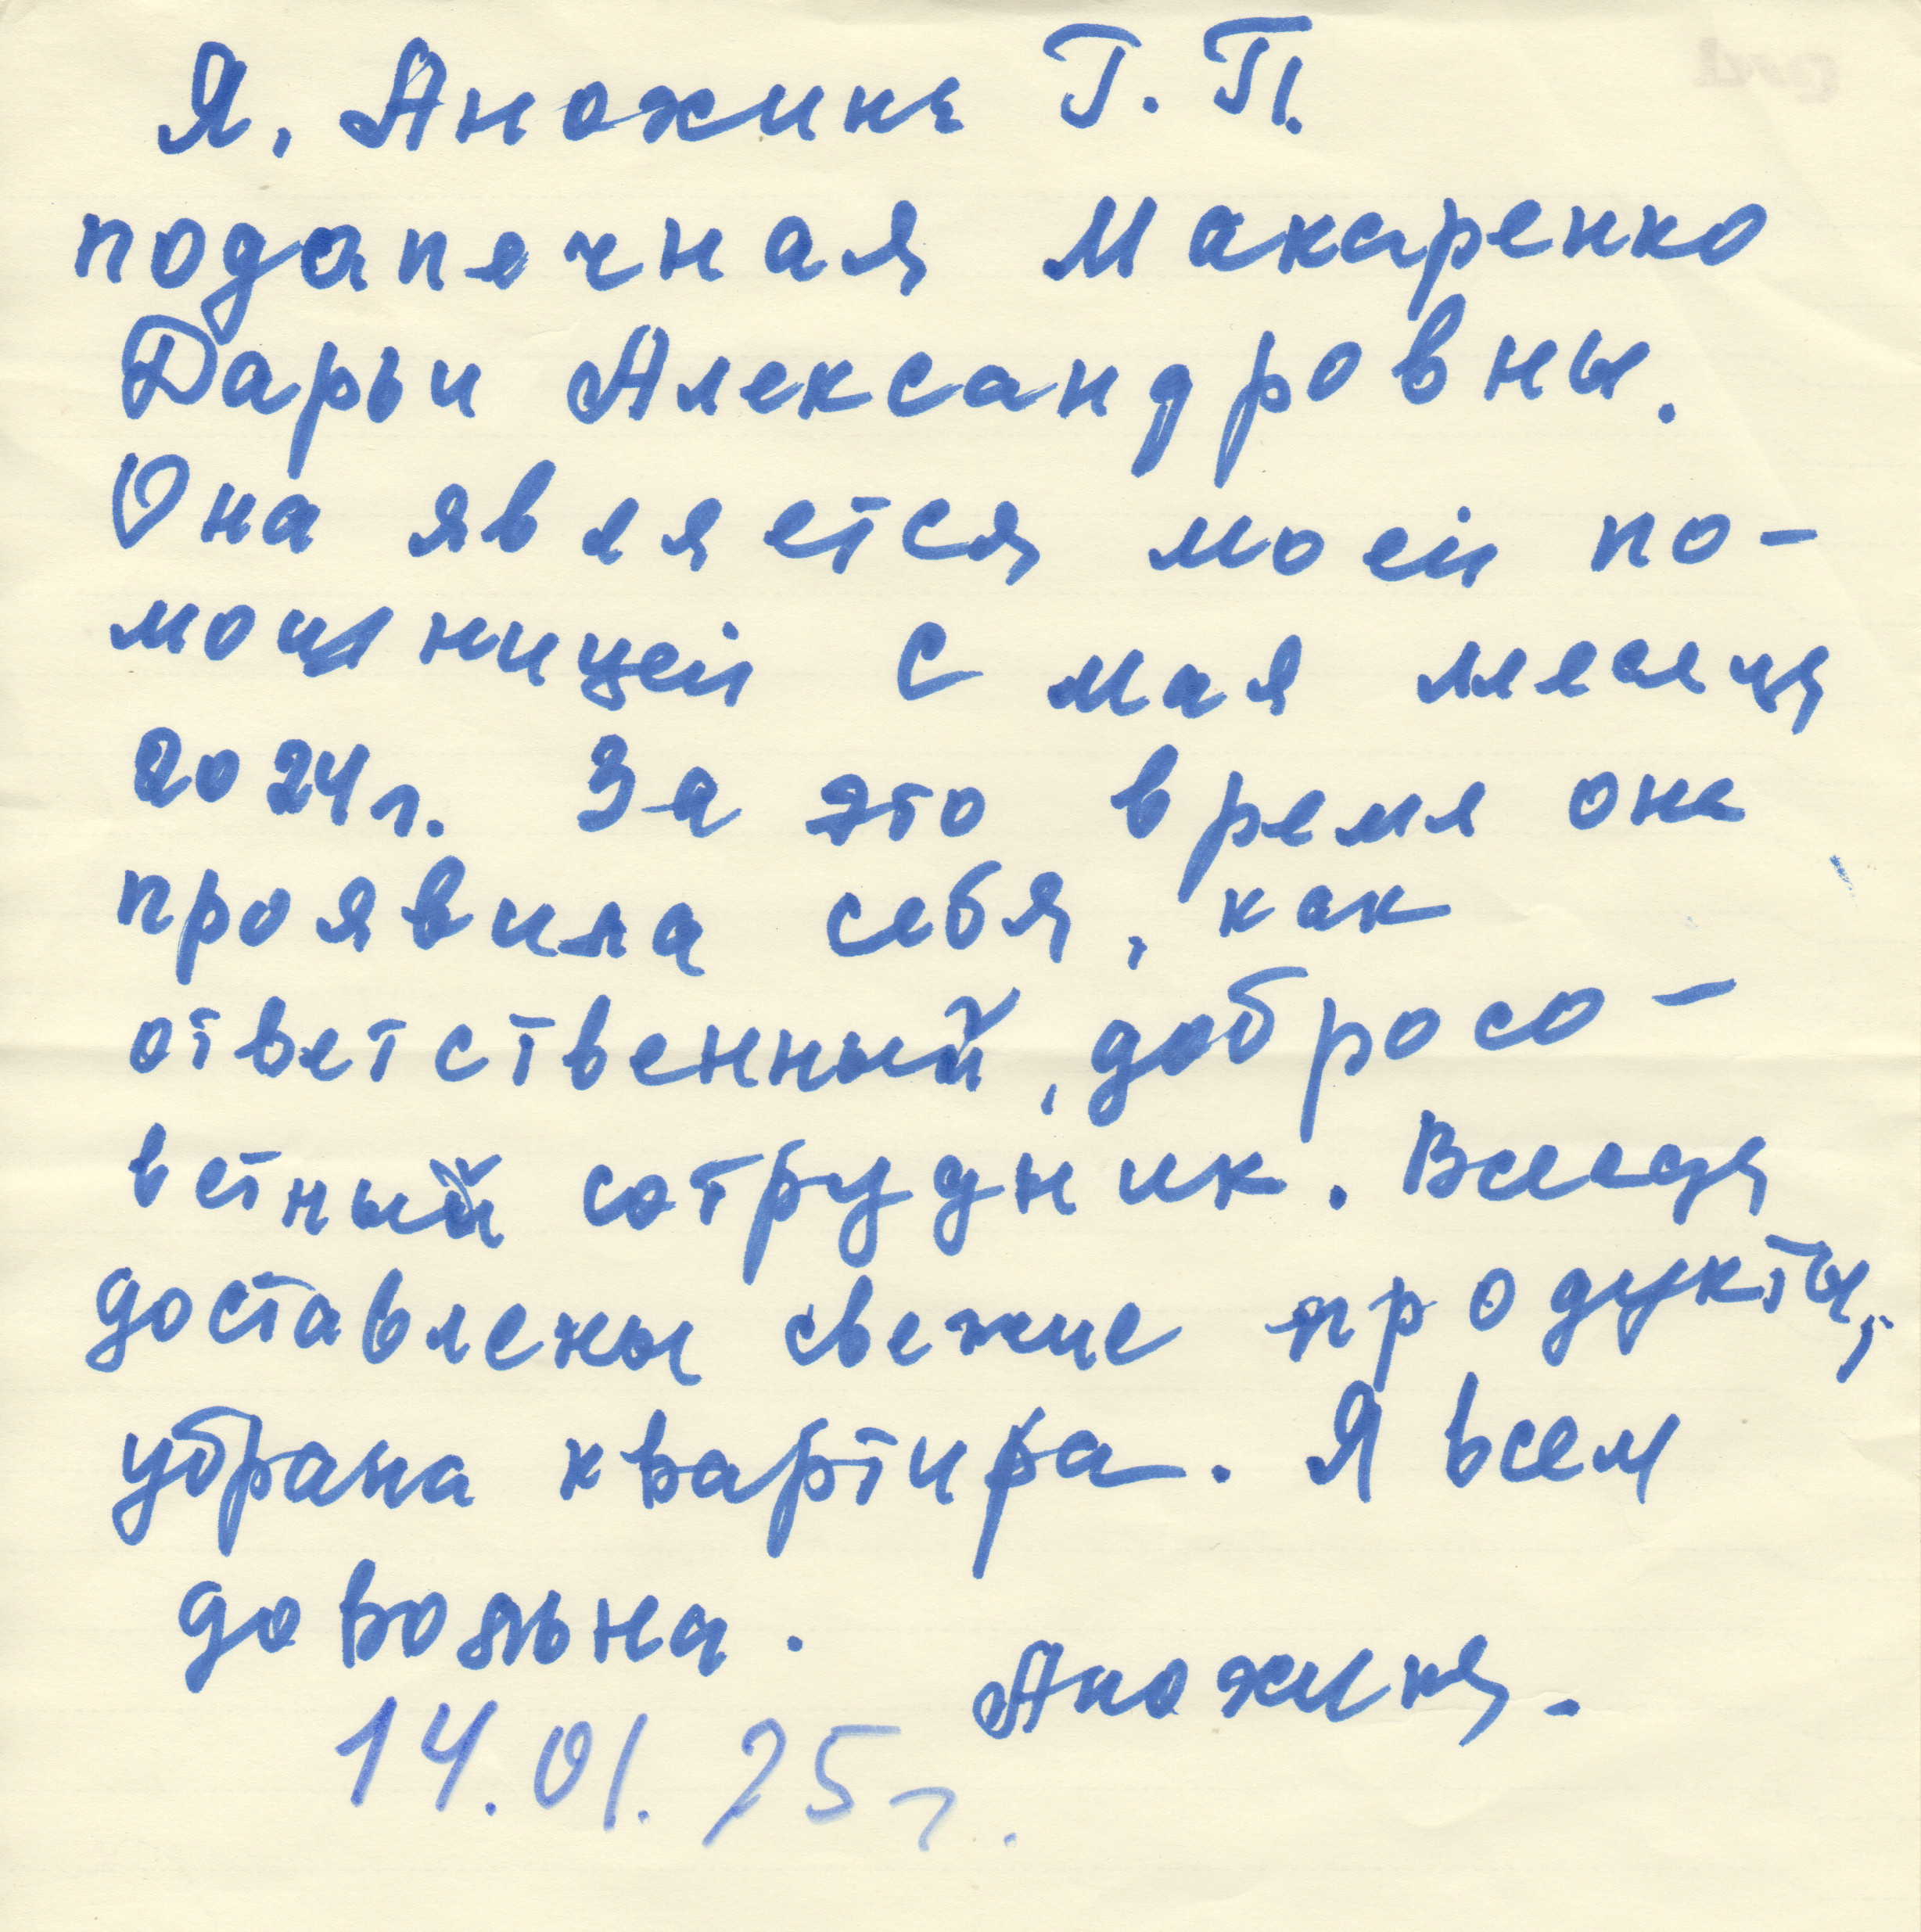 Я, Анохина Г. П.
подопечная Макаренко
Дарьи Александровны.
Она является моей по-
мощницей с мая месяца
2024 г. За это время она
проявила себя, как
ответственный, добросо-
ветный сотрудник. Всегда
доставлены свежие продукты,
убрана квартира. Я всем
довольна.
Анохина.
14.01.25 г.